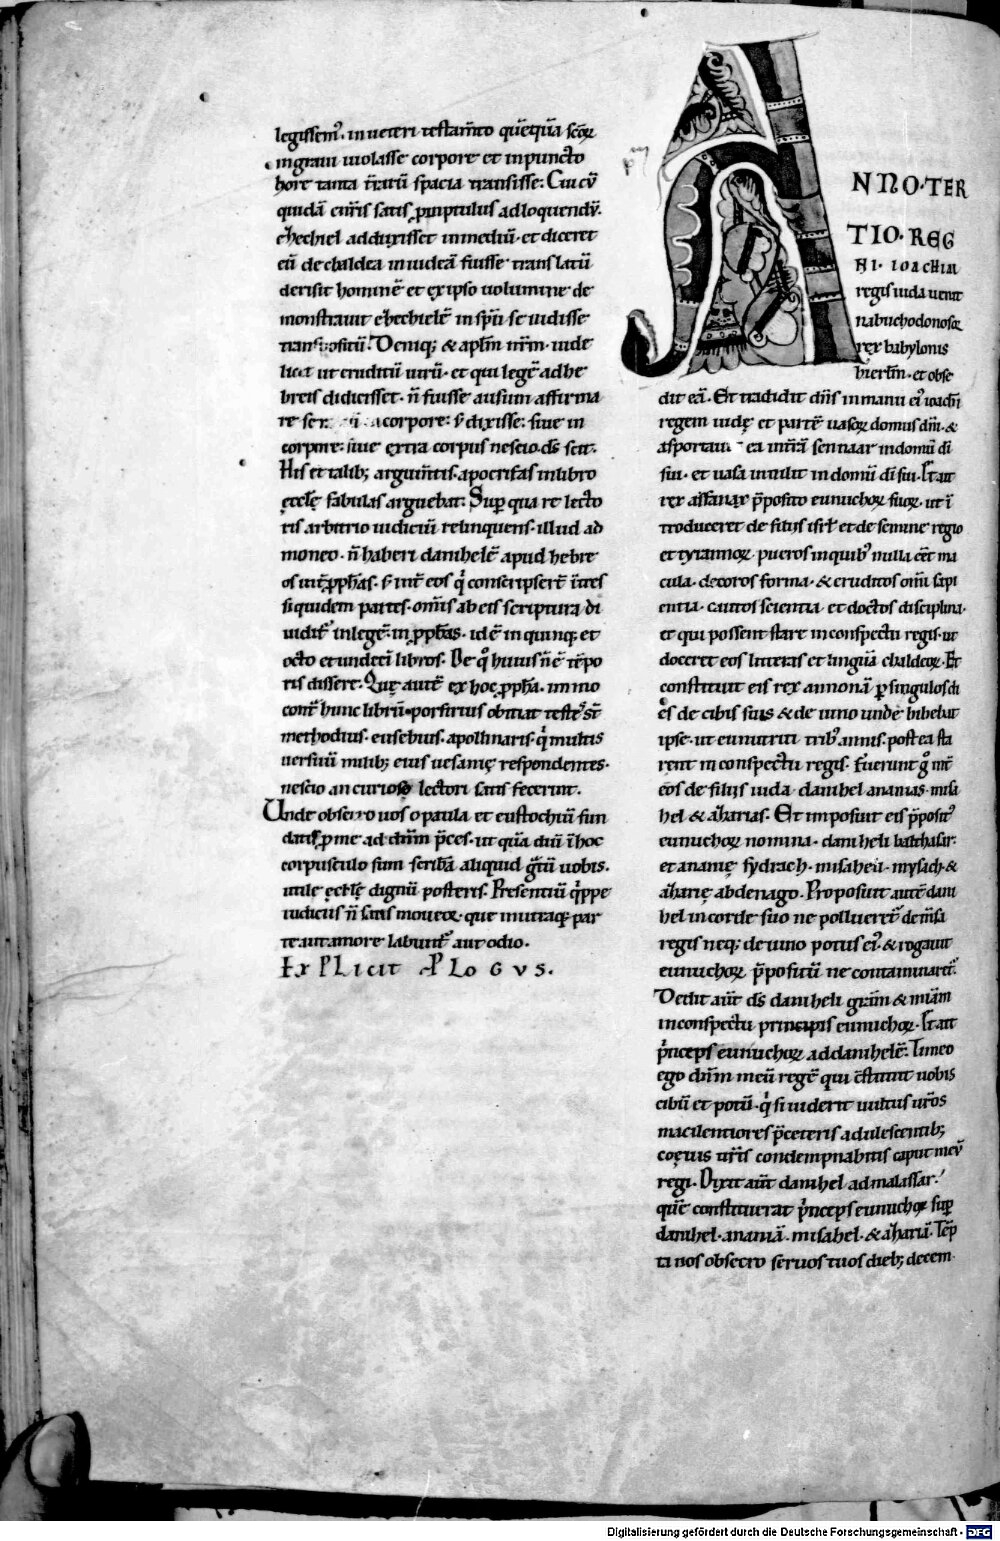 legissem᷒. in ueteri testam̅to quēquā sc̅oꝝ
in graui uolasse corpore et in puncto
hore tanta t̅rarū spacia transisse: Cui cū
quidā ex n̅ris satis ꝓmptulus ad loquendū.
ehechiel adduxisset in mediū. et diceret
eū de chaldea in iudeā fuisse translatū
derisit hominē et ex ipso uolumine de
monstrauit ehechielē in sp̅u se uidisse
transpositū. Deniq; & ap̅lm n̅rm. uide
licet ut eruditū uirū. et qui legē ad he
breis didicisset. n̅ fuisse ausum affirma
re corpore: s; dixisse: siue in
corpore. siue extra corpus nescio. d̅s scit.
His et talib; argum̅tis. apocrifas in libro
ęccl̅ę fabulas arguebat. Suꝑ qua re lecto
ris arbitrio iudiciū relinquens. illud ad
moneo. n̅ haberi danihelē apud hebre
os int̅ ꝓphas. s; int̅ eos qͥ conscripser̅t
siquidem partes. om̅is ab eis scriptura di
uidit᷒. in legē. in ꝓphas. id ē in quinq; et
octo et undeci libros. De qͦ huius n̅ ē tēpo
ris dissere. Quę autē ex hoc ꝓpha. immo
cont̅ hunc librū. porfirius obiciat testes st̅
methodius. eusebius. apollinaris. qͥ multis
uersuū milib; eius uesanię respondentes.
nescio an curioso lectori satis fecerint.
Unde obsecro uos o paula et eustochiū fun
datis ꝓ me ad dn̅m p̅ces. ut quā diu ī hoc
corpusculo sum scribā aliquid gr̅tū uobis.
utile ęccl̅ę dignū posteris. Presentiū qͥppe
iudiciis n̅ satis moueor. que in utraq; par
te aut amore labunt᷒ aut odio.
EXPLICIT PLOGVS.
ANNO. TER
TIO. REG
NI. IOACHIM
regis iuda uenit
nabuchodonosoꝝ
rex babylonis
hierl̅m. et obse
dit eā. Et tradidit dn̅s in manu ei᷒ ioachī
regem iudę et partē uasoꝝ domus dn̅i. &
asportauit ea in t̅rā sennaar in domū di̅
sui. et uasa intulit in domū di̅ sui. Et ait
rex assanaz p̅posito eunuchoꝝ suoꝝ. ut ī
troduceret de filiis isr̅l et de semine regio
et tyrannoꝝ. pueros in quib᷒ nulla eēt ma
cula. decoros forma. & eruditos om̅i sapi
entia. cautos scientia et doctos disciplina.
et qui possent stare in conspectu regis. ut
doceret eos litteras et linguā chaldeoꝝ. Et
constituit eis rex annonā ꝑ singulos di
es de cibis suis & de uino unde bibebat
ipse. ut enutriti trib᷒ annis. postea sta
rent in conspectu regis. Fuerunt gͦ int̅
eos de filiis iuda danihel ananias. misa
hel & aharias. Et imposuit eis p̅posit᷒
eunuchoꝝ nomina. daniheli balthasar.
et ananię sydrach. misaheli. mysach. &
aharię abdenago. Proposuit autē dani
hel in corde suo ne pollueret᷒ de m̅sa
regis neq; de uino potus ei᷒. & rogauit
eunuchoꝝ p̅positū ne contaminaret᷒.
Dedit aut̅ d̅s daniheli gr̅am & mi̅am
in conspectu principis eunuchoꝝ. Et ait
p̅nceps eunuchoꝝ ad danihelē. Timeo
ego dn̅m meū regē qui c̅stituit uobis
cibū et potū. qͥ si uiderit uultus ur̅os
macilentiores p̅ ceteris adulescentib;
coęuis ur̅is condempnabitis caput meū
regi. Dixit aut̅ danihel ad malassar.
quē constituerat p̅nceps eunuchoꝝ suꝑ
danihel. ananiā. misahel. & ahariā. Tēp
ta nos obsecro seruos tuos dieb; decem
Digitalisierung gefördert durch die Deutsche Forschungsgemeinschaft - DFG